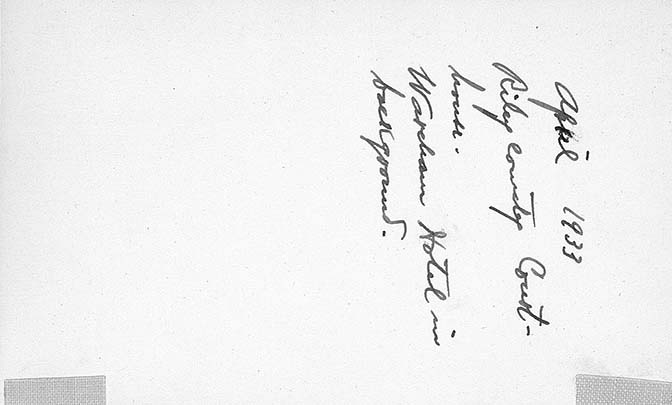 April 1933
Riley County Court-
house.
Wareham Hotel in
background.